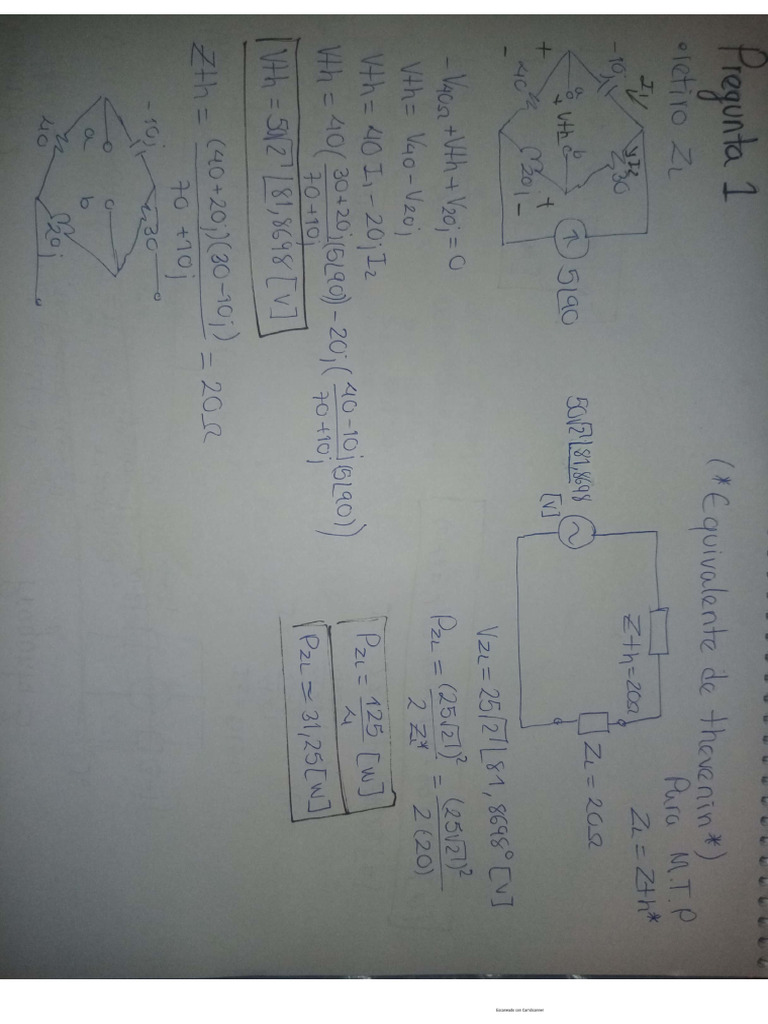 Pregunta 1
• retiro ZL
-10j
I1
I2
30
+
a
+
Vth
b
-
40
20j
+
-
5∠90
-V40Ω + Vth + V20j = 0
Vth = V40 - V20j
Vth = 40 I1 - 20j I2
Vth = 40 ( 30+20j / 70+10j (5∠90)) - 20j ( 40-10j / 70+10j (5∠90))
Vth = 50√2 ∠81,8698 [V]
Zth = (40+20j)(30-10j) / 70+10j = 20Ω
-10j
30
a
b
40
20j
(*Equivalente de thevenin*)
Para M.T.P
ZL = Zth*
Zth=20Ω
50√2 ∠81,8698
[V]
ZL = 20Ω
VZL = 25√2 ∠81,8698° [V]
PZL = (25√2)² / 2 ZL* = (25√2)² / 2(20)
PZL = 125 / 4 [W]
PZL = 31,25 [W]
Escaneado con CamScanner